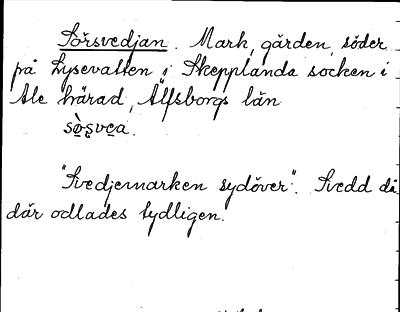 Sörsvedjan. Mark, gården, söder
på Lysevatten i Skepplanda socken i
Ale härad, Älfsborgs län
sö̀ṣvea.
"Svedjemarken sydöver". Svedd då
där odlades tydligen.